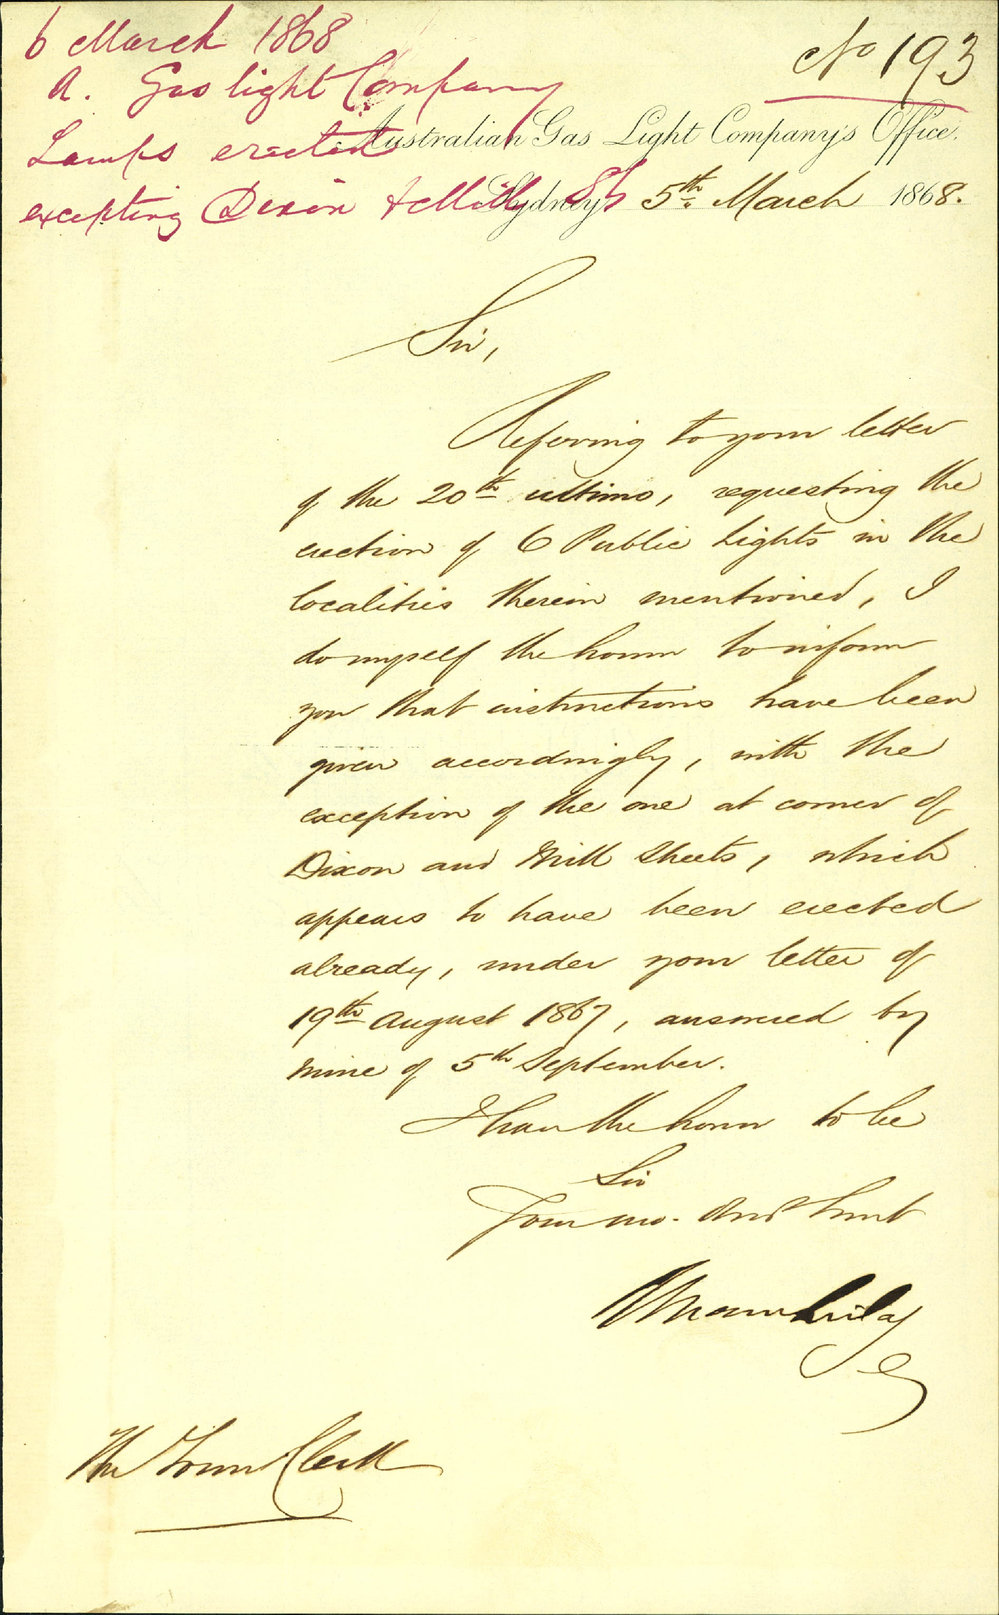 6 March 1868
No 193
A. Gas light Company
Lamps erected
excepting Dixon & Mill Sts
Australian Gas Light Company's Office.
Sydney 5th March 1868.
Sir,
Referring to your letter
of the 20th ultimo, requesting the
erection of 6 Public Lights in the
localities therein mentioned, I
do myself the honor to inform
you that instructions have been
given accordingly, with the
exception of the one at corner of
Dixon and Mill Streets, which
appears to have been erected
already, under your letter of
19th August 1867, answered by
mine of 5th September.
I have the honor to be
Sir
Your mo. Obdt Servt
The Town Clerk